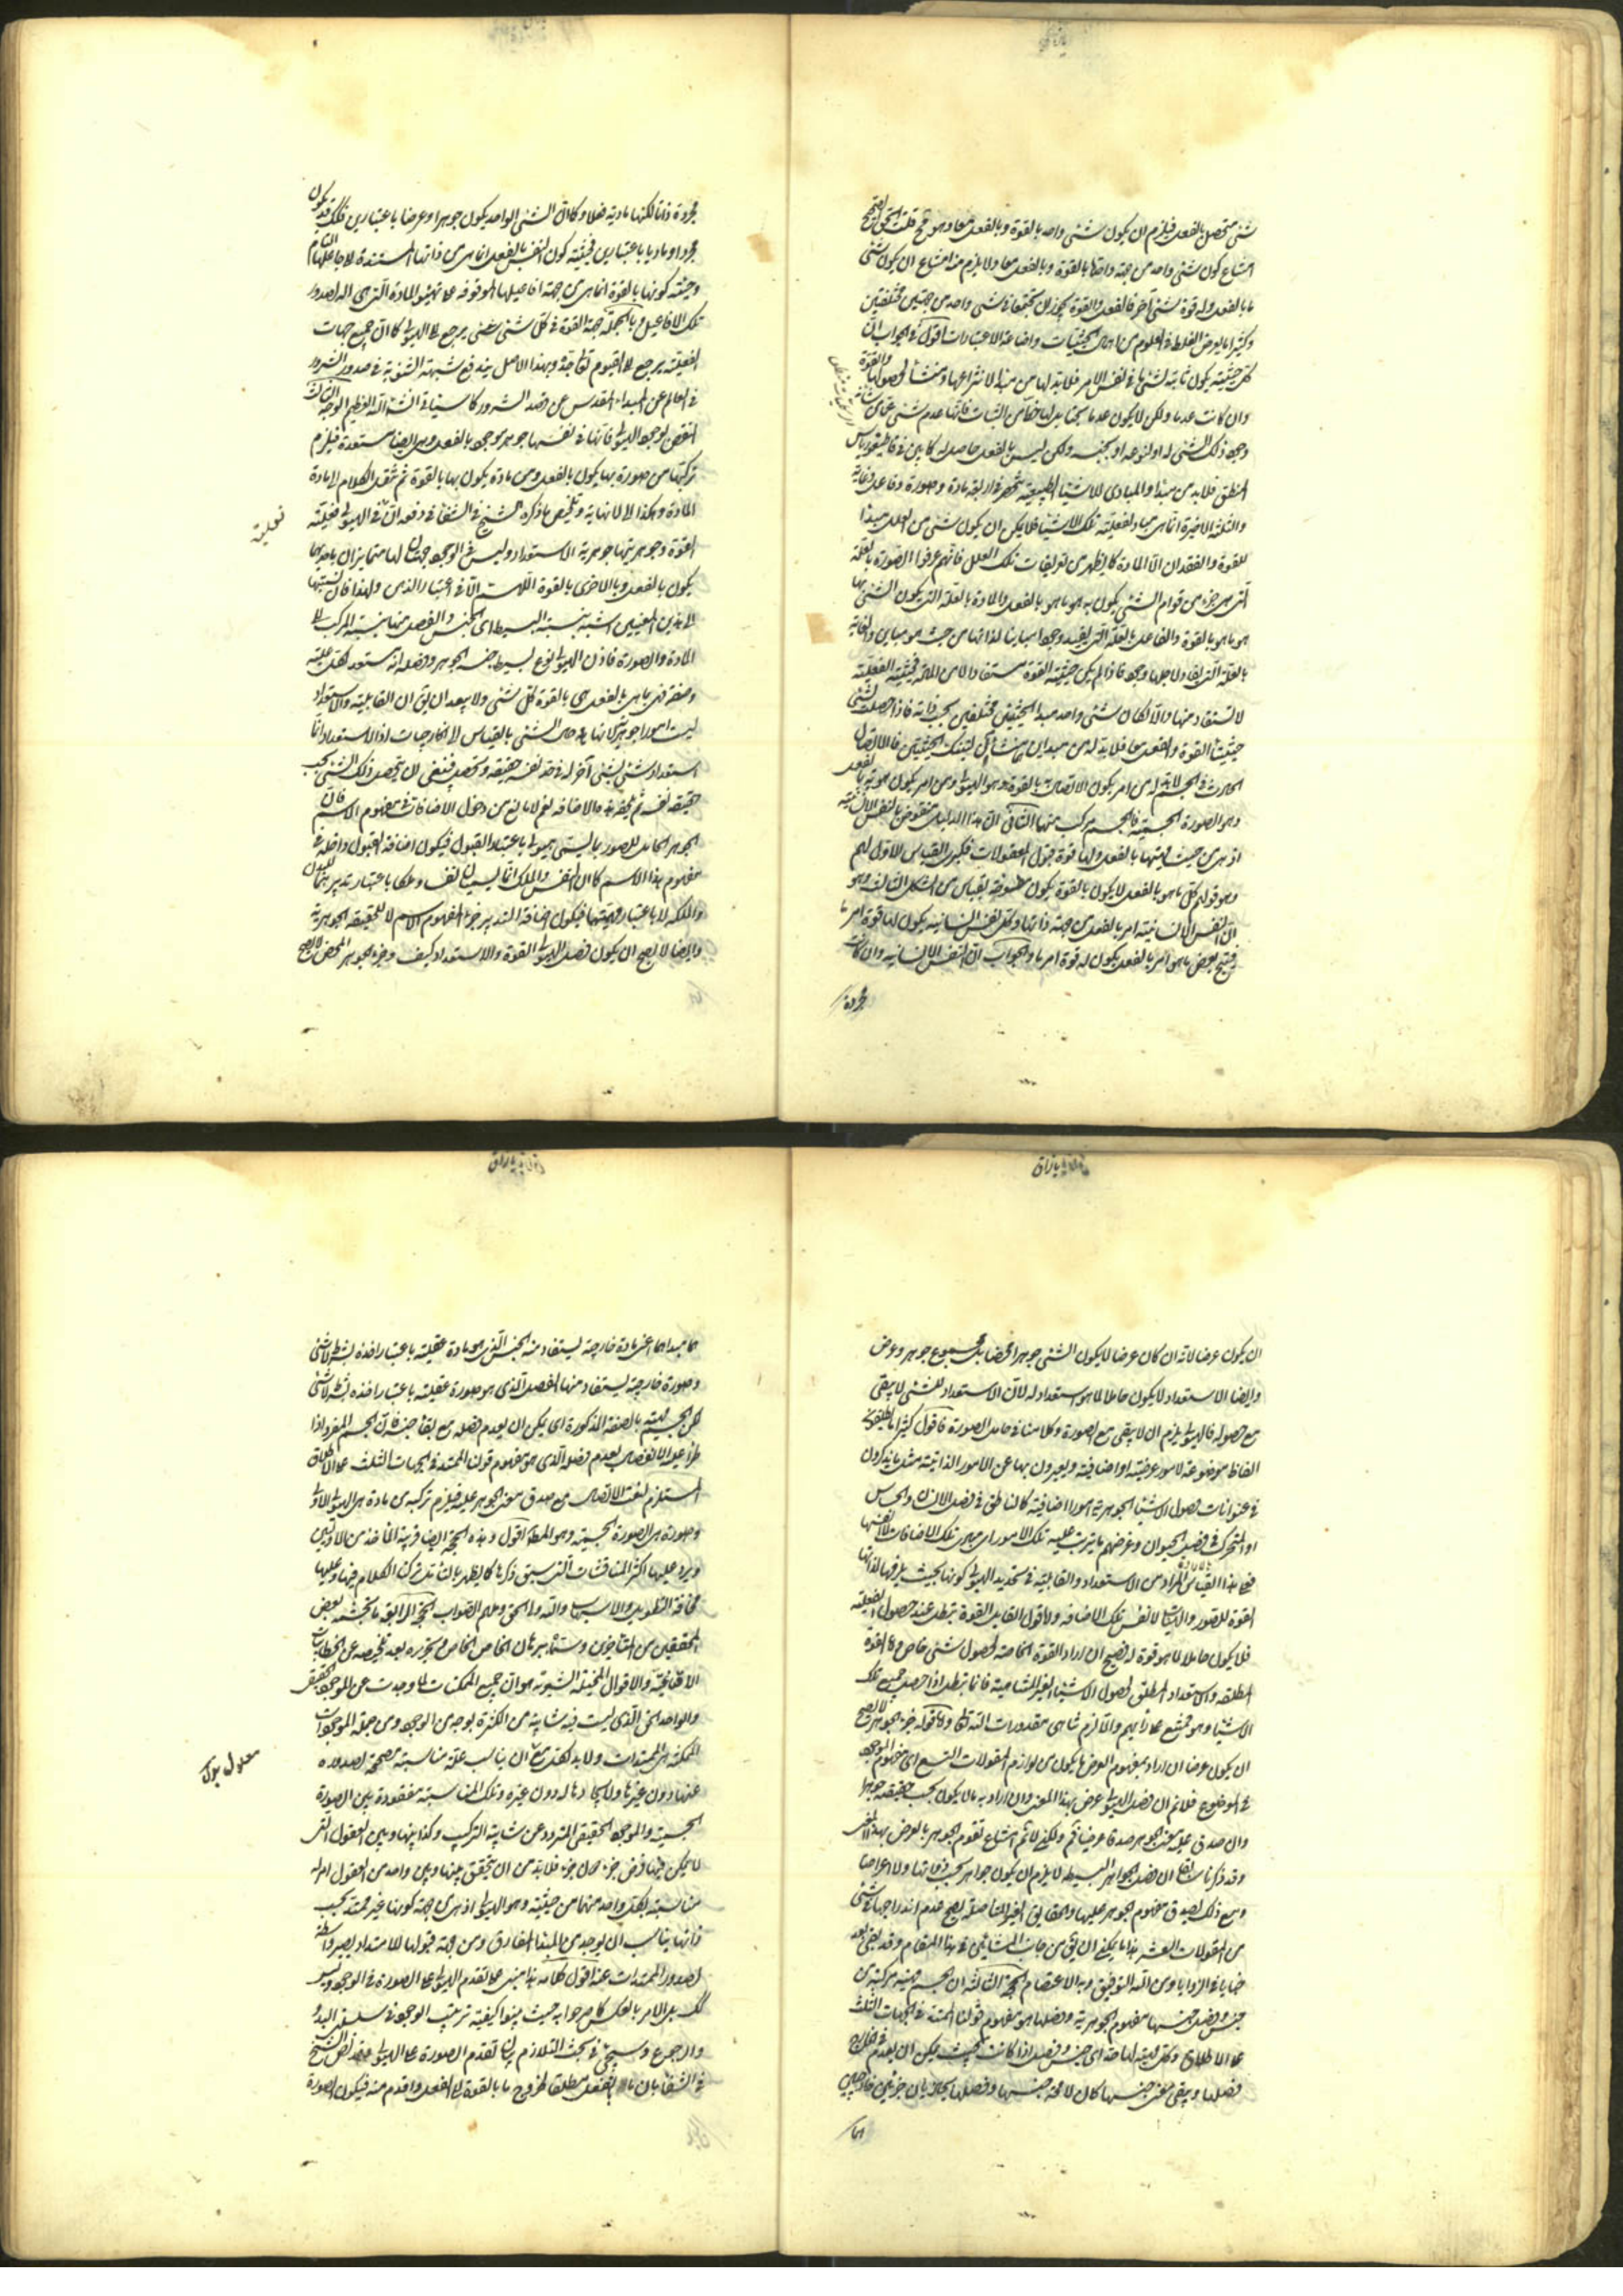 شئ متحصل بالفعل فيلزم ان يكون شئ واحد بالقوة وبالفعل معا وهو مح قلت الحق الصحيح
امتناع كون شئ واحد من جهة واحدة بالقوة وبالفعل معا ولا يلزم منه امتناع ان يكون شئ
ما بالفعل وله قوة شئ آخر فالفعل والقوة يجوز ان يجتمعا في شئ واحد من جهتين مختلفتين
وكثيرا ما يعرض الغلط في العلوم من اهمال الحيثيات واضاعة الاعتبارات اقول في الجواب ان
كل حيثية يكون ثابتة لشئ ما في نفس الامر فلابد لها من مبدا لانتزاعها ومنشأ لحصولها والقوة
وان كانت عدما ولكن لا يكون عدما بحتا بل لها حظا من الثبات فانها عدم شئ عما من شانه
وجود ذلك الشئ له او لنوعه او لجنسه ولكن ليس بالفعل حاصلا له كما بين في قاطيغورياس
المنطق فلابد من مبدا والمبادى للاشياء الطبيعية تنحصر في اربعة مادة وصورة وفاعل وغاية
والثلثة الاخيرة انما هى مباد لفعلية تلك الاشياء فلا يمكن ان يكون شئ من العلل مبدا
للقوة والفقدان الا المادة كما يظهر من تعريفات تلك العلل فانهم عرفوا الصورة بالعلة
التى هى جزء من قوام الشئ يكون به هو ما هو بالفعل والمادة بالعلة التى يكون الشئ بها
هو ما هو بالقوة والفاعل بالعلة التى يفيد وجودا مباينا لذاتها من حيث هو مباين والغاية
بالعلة التى يفاد لاجلها وجود فاذا لم يكن حيثية القوة مستفادا الا من المادة فحيثية الفعلية
لا تستفاد منها والا لكان شئ واحد مبدا لحيثيتين مختلفتين بحسب ذاته فاذا حصلت لشئ
حيثيتا القوة والفعل معا فلابد له من مبداين هما منشأ لتينك الحيثيتين فالاتصال
الحادث في الجسم لابد له من امر يكون الاتصال به بالقوة وهو الهيولى ومن امر يكون هو به بالفعل
وهو الصورة الجسمية فالجسم مركب منهما الثانى ان هذا الدليل منقوض بالنفس الانسانية
اذ هى من حيث ذاتها بالفعل ولها قوة قبول المعقولات فكبرى القياس الاول لهم
وهو قولهم كل ما هو بالفعل لا يكون بالقوة يكون منقوضة بقياس من الشكل الثالث وهو
ان النفس الانسانية امر بالفعل من جهة ذاتها وكل نفس انسانية يكون لها قوة امر ما
فينتج بعض ما هو امر بالفعل يكون له قوة امر ما والجواب ان النفس الانسانية وان كانت
مجردة
مجردة ذاتا لكنها مادية فعلا وكما ان الشئ الواحد يكون جوهرا وعرضا باعتبارين فكذلك قد يكون
مجردا وماديا باعتبارين فحيثية كون النفس بالفعل انما هى من ذاتها المستندة الى جاعلها التام
وحيثية كونها بالقوة انما هى من جهة افاعيلها الموقوفة على تهيؤ المادة التى هى آلة لصدور
تلك الافاعيل وبالجملة جهة القوة في كل شئ شئ يرجع الى الهيولى كما ان جميع جهات
الفعلية يرجع الى القيوم تعالى مجده وبهذا الاصل يندفع شبهة الثنوية في صدور الشرور
في العالم عن المبداء المقدس عن قصد الشرور كما سياتى انشاء الله العظيم الوجه الثالث
النقض لوجود الهيولى فانها في نفسها جوهر موجود بالفعل وهى ايضا مستعدة فيلزم
تركبها من صورة بها يكون بالفعل ومن مادة يكون بها بالقوة ثم ننقل الكلام الى مادة
المادة وهكذا الى لا نهاية وتلخيص ما ذكره الشيخ في الشفا في دفعه ان في الهيولى فعليته
القوة وجوهريتها جوهرية الاستعداد وليس في الوجود جهتان لها متمايزتان باحديهما
يكون بالفعل وبالاخرى بالقوة اللهم الا في اعتبار الذهن ولهذا فان نسبتها
الى هذين المعنيين اشبه بنسبة البسيط الى الجنس والفصل منها بنسبة المركب الى
المادة والصورة فاذن الهيولى نوع بسيط جنسه الجوهر وفصله انه مستعد لكل حلية
وصفة فهى بما هى بالفعل هى بالقوة كل شئ ولا يبعد ان يق ان القابلية والاستعداد
ليست امورا جوهرية لانها حال الشئ بالقياس الى الخارجات اذ الاستعداد انما
استعداد شئ لشئ آخر له في حد نفسه حقيقة وتحصل فينبغى ان يتحصل ذلك الشئ بحسب
حقيقة نفسه ثم يلحقه هذه الاضافة نعم لا مانع من دخول الاضافات في مفهوم الاسم فان
الجوهر الحامل للصور مما يسمى هيولى باعتبار القبول فيكون اضافة القبول داخلة في
مفهوم هذا الاسم كما ان النفس والملك انما يسميان نفسا وملكا باعتبار تدبيرهما للبدن
والملكة لا باعتبار ذاتيهما فيكون اضافة التدبير جزء المفهوم الاسم لا للحقيقة الجوهرية
وايضا لا يصح ان يكون فصل الهيولى القوة والاستعداد كيف وجزء الجوهر المحض لا يصح
فعلية
ان يكون عرضا لانه ان كان عرضا لا يكون الشئ جوهرا محضا بل مجموع جوهر وعرض
وايضا الاستعداد لا يكون حاملا لما هو استعداد له لان الاستعداد للشئ لا يبقى
مع حصوله فالهيولى يلزم ان لا يبقى مع الصورة وكلامنا في حامل الصورة فاقول كثيرا ما يطلقون
الفاظا موضوعة لامور عرضية او اضافية ويعبرون بها عن الامور الذاتية مثل ما يذكرون
في عنوانات فصول الاشياء الجوهرية امورا اضافية كالناطق في فصل الانسان والحساس
او المتحرك في فصل الحيوان وغرضهم ما يترتب عليه تلك الامور اى مبادى تلك الاضافات لا نفسها
فعلى هذا القياس المراد من الاستعداد والقابلية في تحديد الهيولى كونها بحيث يلزمها لذاتها
القوة للصور والهيئات لا نفس تلك الاضافة واما قول القائل القوة تبطل عند حصول الفعلية
فلا يكون حاملا لما هو قوة له فصحيح ان اراد القوة الخاصة لحصول شئ خاص واما القوة
المطلقة والاستعداد المطلق لحصول الاشياء الغير المتناهية فانما تبطل اذا حصل جميع تلك
الاشياء وهو ممتنع على رأيهم والا لزم تناهى مقدورات الله تعالى واما قوله جزء الجوهر لا يصح
ان يكون عرضا ان اراد بمفهوم العرض ما يكون من لوازم المقولات التسع اى مفهوم الموجود
في الموضوع فلا نم ان فصل الهيولى عرض بهذا المعنى وان اراد به ما لا يكون بحسب حقيقته جوهرا
وان صدق عليه معنى الجوهر صدقا عرضيا فنعم ولكن لا نم امتناع تقوم الجوهر بالعرض بهذا المعنى
وقد ذكرنا سابقا ان فصل الجواهر البسيطة لا يلزم ان يكون جواهر بحسب ذواتها ولا اعراضا
ومع ذلك يصدق مفهوم الجوهر عليها والحقايق الغير المتاصلة يصح عدم اندراجها تحت شئ
من المقولات العشر هذا ما يمكن ان يق من جانب المشائين في هذا المقام وقد بقى بعد
خبايا في الزوايا ومن الله التوفيق وبه الاعتصام الحجة الثالثة ان الجسم مهية مركبة من
جنس وفصل جنسها مفهوم الجوهرية وفصلها هو مفهوم قولنا الممتد في الجهات الثلث
على الاطلاق وكل مهية لها حد اى جنس وفصل اذا كانت بحيث يمكن ان يعدم في الخارج
فصلها ويبقى معنى جنسها كان لا محة جنسها وفصلها يحاذيان جزئين خارجيين
هما
هما مبداهما اعنى مادة خارجة يستفاد منه الجنس الذى هو مادة عقلية باعتبار اخذه بشرط لا شئ
وصورة خارجية يستفاد منها الفصل الذى هو صورة عقلية باعتبار اخذه بشرط لا شئ
لكن الجسم مهيته بالصفة المذكورة اى يمكن ان يعدم فصله مع بقاء جنسه فان الجسم المفرد اذا
طرأ عليه الانفصال يعدم فصله الذى هو مفهوم قولنا الممتد في الجهات الثلث على الاطلاق
المستلزم لنفى الاتصال مع صدق معنى الجوهر عليه فيلزم تركبه من مادة هى الهيولى الاولى
وصورة هى الصورة الجسمية وهو المط اقول وهذه الحجة ايضا قريبة المأخذ من الاوليين
ويرد عليها اكثر المناقشات التى سبق ذكرها كما يظهر بالتأمل تركنا الكلام فيها وعليها
مخافة التطويل والاسهاب والله ولى الحق وملهم الصواب الحجة الرابعة ما تجشمه بعض
المحققين من المتأخرين وسماه ببرهان الخاص الخاص وتحريره بعد تلخيصه عن الخطابيات
الاقناعية والاقوال المخيلة الشعرية هو ان جميع الممكنات لما وجدت عن الموجود الحقيقى
والواحد الحق الذى ليست فيه شايبة من الكثرة بوجه من الوجوه ومن جملة الموجودات
الممكنة هى الممتدات ولابد لكل معلول ان يناسب علته مناسبة مصححة لصدوره
عنها دون غيرها ولايجادها له دون غيره وتلك المناسبة مفقودة بين الصورة
الجسمية والموجود الحقيقى المتفرد عن شايبة التركيب وكذا بينها وبين العقول التى
لا يمكن فيها فرض جزء دون جزء فلابد من ان يتحقق بينها وبين واحد من العقول امر له
مناسبة بكل واحد منهما من حيثية وهو الهيولى اذ هى من جهة كونها غير ممتدة بحسب
ذاتها يناسب ان يوجد من المبدا المفارق ومن جهة قبولها للامتداد يصير واسطة
لصدور الممتدات عنه اقول كلامه هذا مبنى على تقدم الهيولى على الصورة في الوجود وليس
كك بل الامر بالعكس كما صرحوا به حيث بينوا كيفية ترتيب الوجود في سلسلتى البدو
والرجوع وسيجئ في بحث التلازم بيان تقدم الصورة على الهيولى وقد نص الشيخ
في الشفا بان ما بالفعل مطلقا لخروج ما بالقوة الى الفعل واقدم منه فيكون الصورة
معلول يكون